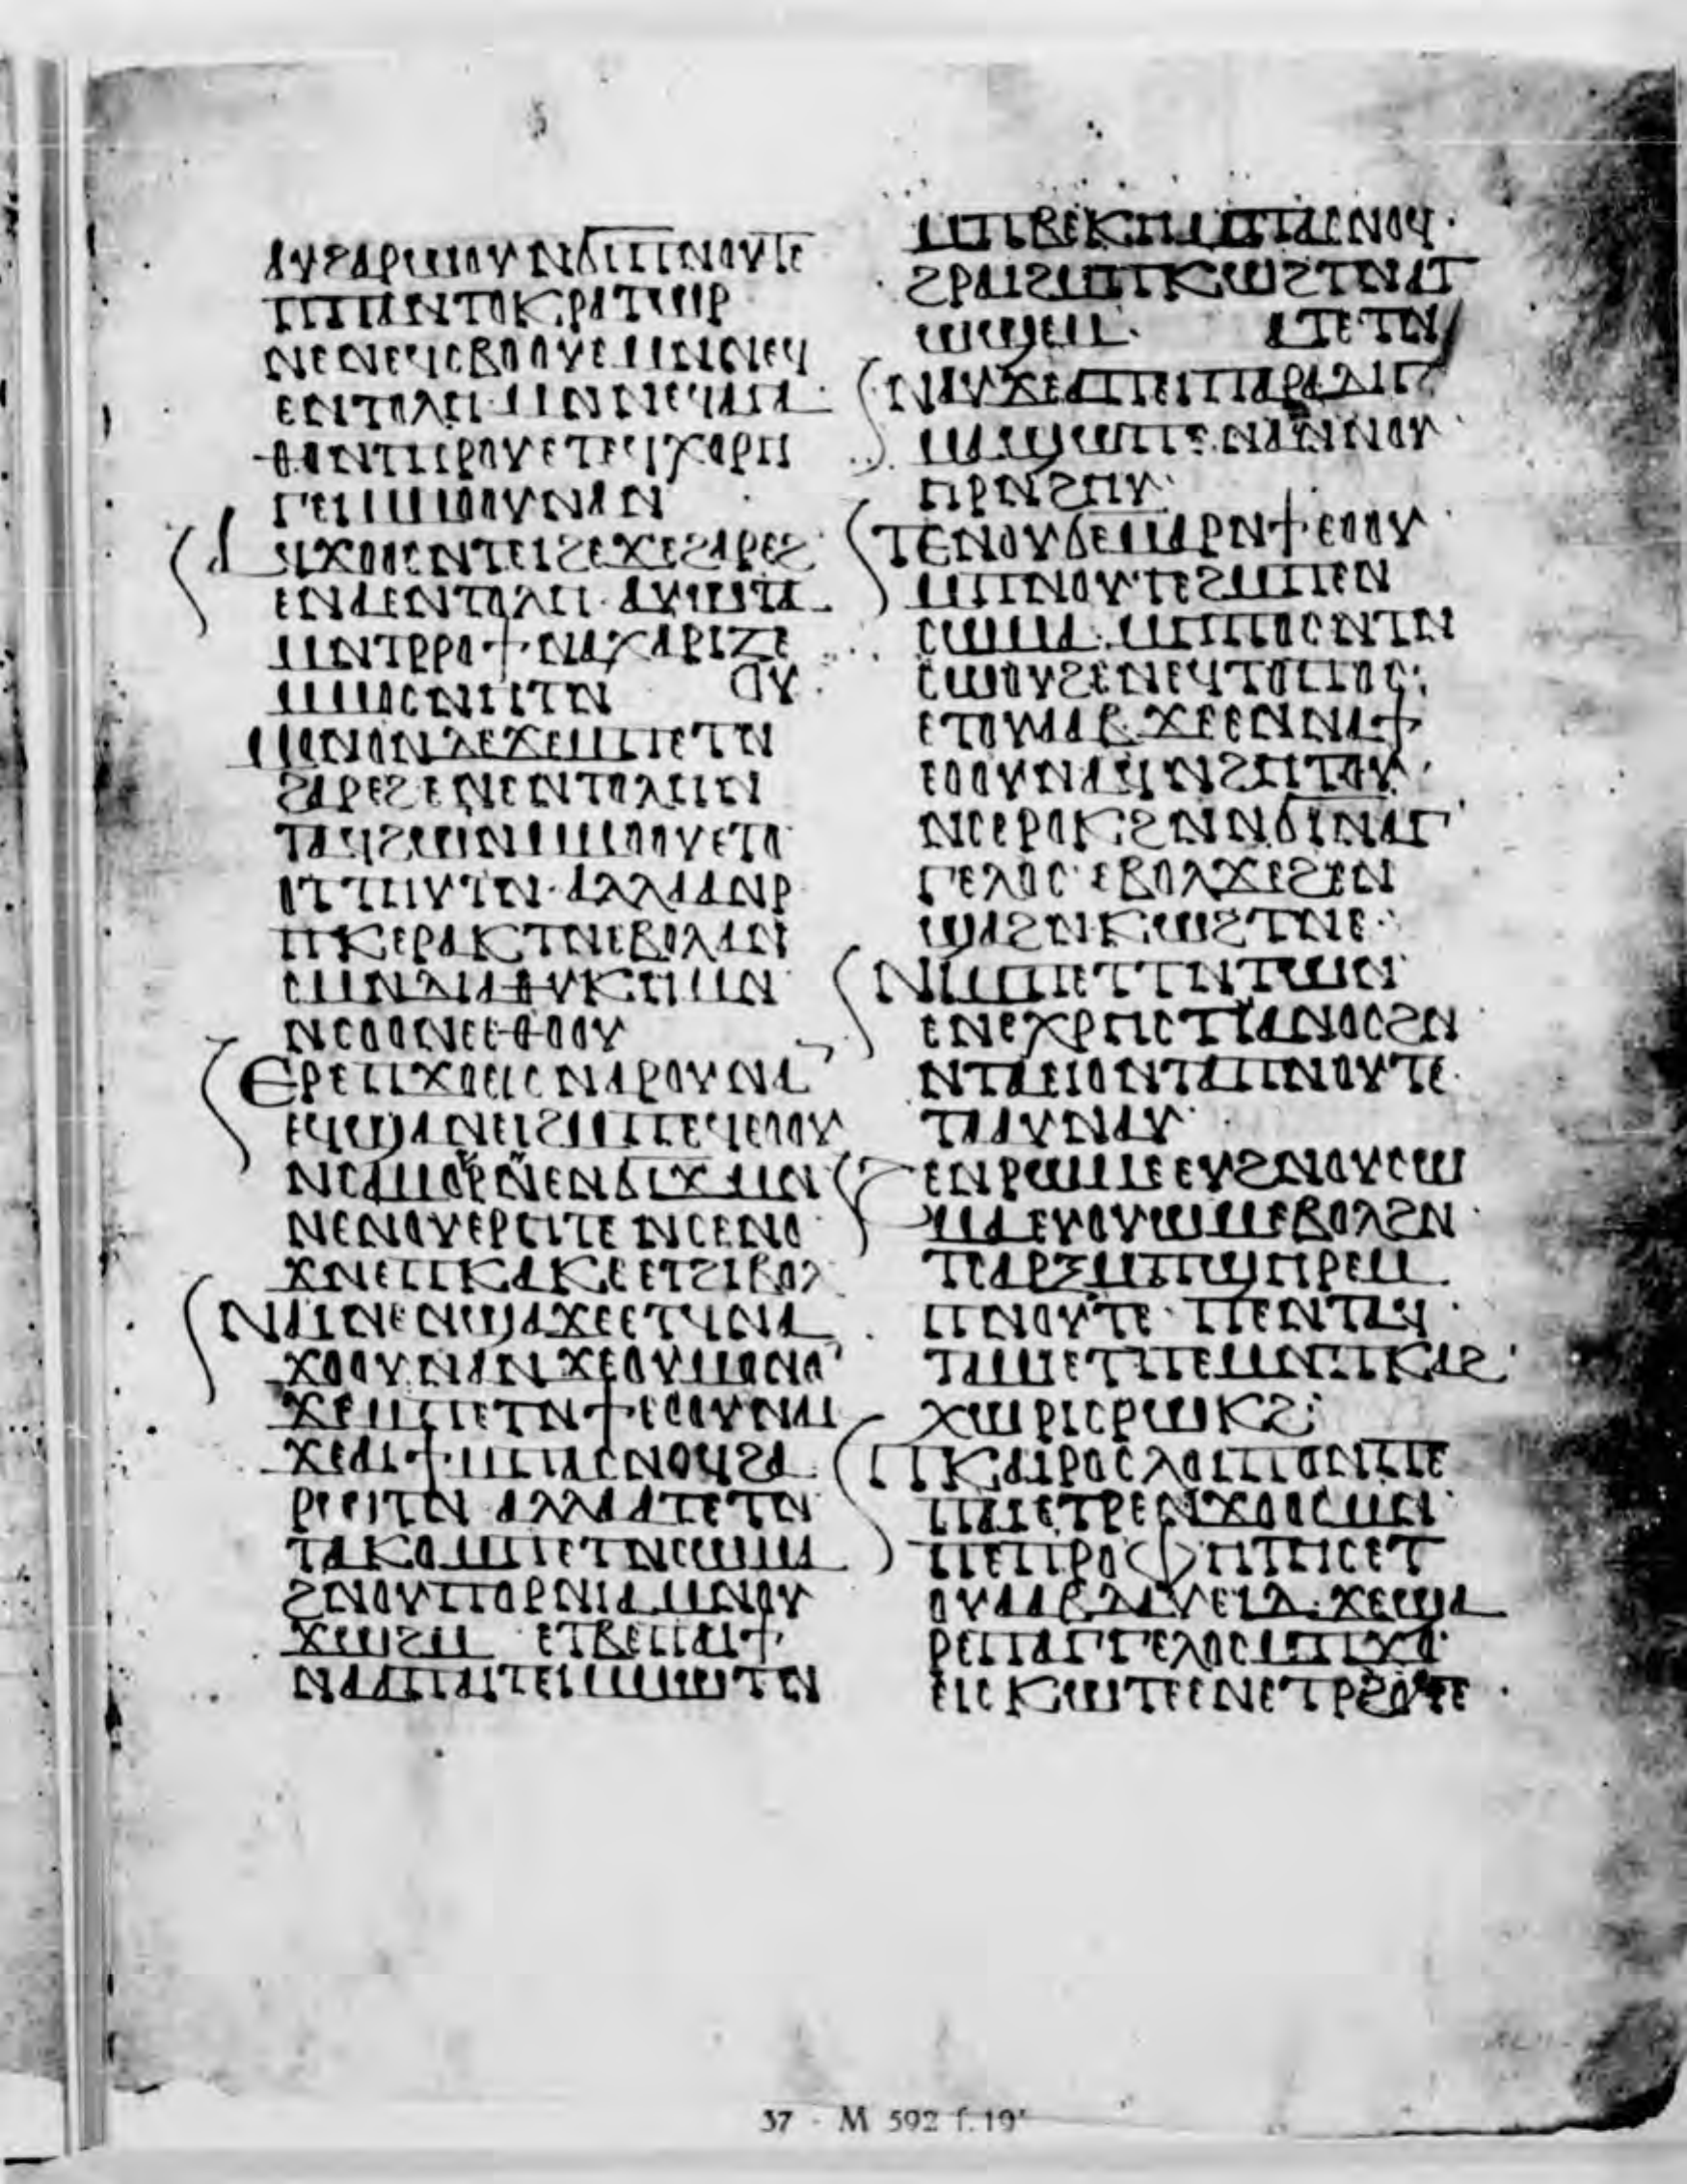 ⲁⲩϩⲁⲣⲱⲟⲩ ⲛϭⲓⲡⲛⲟⲩⲧⲉ
ⲡⲡⲁⲛⲧⲟⲕⲣⲁⲧⲱⲣ
ⲛⲉⲛⲉϥⲥⲃⲟⲟⲩⲉ ⲙⲛⲛⲉϥ
ⲉⲛⲧⲟⲗⲏ· ⲙⲛⲛⲉϥⲁⲅⲁ
ⲑⲟⲛⲧⲏⲣⲟⲩ ⲉⲧⲉϥⲭⲟⲣⲏ
ⲅⲉⲓ ⲙⲙⲟⲟⲩ ⲛⲁⲛ
ⲁϥϫⲟⲟⲥ ⲛⲧⲉⲓϩⲉ ϫⲉϩⲁⲣⲉϩ
ⲉⲛⲁⲉⲛⲧⲟⲗⲏ· ⲁⲩⲱⲧⲁ
ⲙⲛⲧⲣⲣⲟ ϯⲛⲁⲭⲁⲣⲓⲍⲉ
ⲙⲙⲟⲥ ⲛⲏⲧⲛ ⲟⲩ
ⲙⲟⲛⲟⲛ ⲇⲉ ϫⲉⲙⲡⲉⲧⲛ
ϩⲁⲣⲉϩ ⲉⲛⲉⲛⲧⲟⲗⲏ ⲛ
ⲧⲁϥϩⲱⲛ ⲙⲙⲟⲟⲩ ⲉⲧⲟ
ⲟⲧⲧⲏⲩⲧⲛ· ⲁⲗⲗⲁ ⲁⲛⲣ
ⲡⲕⲉⲣⲁⲕⲧⲛ ⲉⲃⲟⲗ ⲁⲛ
ⲥⲙⲛⲇⲓⲁⲑⲩⲕⲏ ⲙⲛ
ⲛⲥⲟⲟⲛⲉ ⲉⲑⲟⲟⲩ
ⲉⲣⲉⲡϫⲟⲉⲓⲥ ⲛⲁⲣⲟⲩ ⲛⲁ
ⲉϥϣⲁⲛⲉⲓ ϩⲙⲡⲉϥⲉⲟⲟⲩ
ⲛⲥⲁⲙⲟⲣⲛ ⲉⲛϭⲓϫ ⲙⲛ
ⲛⲉⲛⲟⲩⲉⲣⲏⲧⲉ ⲛⲥⲉⲛⲟ
ϫⲛ ⲉⲡⲕⲁⲕⲉ ⲉⲧϩⲓⲃⲟⲗ
ⲛⲁⲓ ⲛⲉ ⲛϣⲁϫⲉ ⲉⲧϥⲛⲁ
ϫⲟⲟⲩ ⲛⲁⲛ ϫⲉⲟⲩⲙⲟⲛⲟ
ϫⲉⲙⲡⲉⲧⲛϯⲉⲟⲟⲩ ⲛⲁⲓ
ϫⲉⲁⲓϯ ⲙⲡⲁⲥⲛⲟϥ ϩⲁ
ⲣⲱⲧⲛ ⲁⲗⲗⲁ ⲁⲧⲉⲧⲛ
ⲧⲁⲕⲟ ⲙⲡⲉⲧⲛⲥⲱⲙⲁ
ϩⲛⲟⲩⲡⲟⲣⲛⲓⲁ ⲙⲛⲟⲩ
ϫⲱϩⲙ ⲉⲧⲃⲉⲡⲁⲓ ϯ
ⲛⲁⲁⲡⲁⲓⲧⲉⲓ ⲙⲙⲱⲧⲛ
ⲙⲡⲃⲉⲕⲏ ⲙⲡⲁⲥⲛⲟϥ·
ϩⲣⲁⲓ ϩⲙⲡⲕⲱϩⲧ ⲛⲁⲧ
ⲱϣⲙ· ⲁⲧⲉⲧⲛ
ⲛⲁⲩ ϫⲉⲁⲡⲉⲓⲡⲁⲣⲁⲇⲓⲅ
ⲙⲁ ϣⲱⲡⲉ ⲛⲁⲛ ⲛⲟⲩ
ⲏⲣ ⲛϩⲏⲩ·
ⲧⲉⲛⲟⲩ ϭⲉ ⲙⲁⲣⲛϯⲉⲟⲟⲩ
ⲙⲡⲛⲟⲩⲧⲉ ϩⲙⲡⲉⲛ
ⲥⲱⲙⲁ· ⲙⲡⲡⲟⲥ ⲛⲧⲛ
ⲥⲱⲟⲩϩ ⲉⲛⲉϥⲧⲟⲡⲟⲥ·
ⲉⲧⲟⲩⲁⲁⲃ ϫⲉⲉⲛⲛⲁϯ
ⲉⲟⲟⲩ ⲛⲁϥ ⲛϩⲏⲧⲟⲩ·
ⲛⲥⲉⲣⲟⲕϩⲛ ⲛϭⲓⲛⲁⲅ
ⲅⲉⲗⲟⲥ ⲉⲃⲟⲗ ϫⲉϩⲉⲛ
ϣⲁϩ ⲛⲕⲱϩⲧ ⲛⲉ·
ⲛⲓⲙ ⲡⲉⲧⲧⲛⲧⲱⲛ
ⲉⲛⲉⲭⲣⲏⲥⲧⲓⲁⲛⲟⲥ ϩⲛ
ⲛⲧⲁⲉⲓⲟ ⲛⲧⲁⲡⲛⲟⲩⲧⲉ
ⲧⲁⲁⲩ ⲛⲁⲩ·
ϩⲉⲛⲣⲱⲙⲉ ⲉⲩϩⲛⲟⲩⲥⲱ
ⲙⲁ ⲉⲩⲟⲩⲱⲙ ⲉⲃⲟⲗ ϩⲛ
ⲧⲥⲁⲣⲝ ⲙⲡϣⲏⲣⲉ ⲙ
ⲡⲛⲟⲩⲧⲉ· ⲡⲉⲛⲧⲁϥ
ⲧⲁⲙⲓⲉⲧⲡⲉ ⲙⲛⲡⲕⲁϩ·
ⲭⲱⲣⲓⲥ ⲣⲱⲕϩ·
ⲡⲕⲁⲓⲣⲟⲥ ⲗⲟⲓⲡⲟⲛ ⲡⲉ
ⲡⲁⲓ ⲉⲧⲣⲉⲛϫⲟⲟⲥ ⲙⲛ
ⲡⲉⲡⲣⲟⲫⲏⲧⲏⲥ ⲉⲧ
ⲟⲩⲁⲁⲃ ⲇⲁⲩⲉⲓⲇ· ϫⲉϣⲁ
ⲣⲉⲡⲁⲅⲅⲉⲗⲟⲥ ⲙⲡϫⲟ
ⲉⲓⲥ ⲕⲱⲧⲉ ⲉⲛⲉⲧⲣϩⲟⲧⲉ
37 · M 592 f.19ʳ